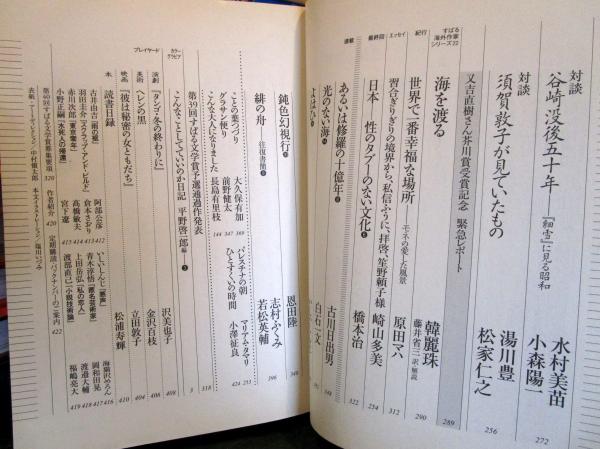 対談
谷崎没後五十年――『細雪』に見る昭和
水村美苗
小森陽一
272
対談
須賀敦子が見ていたもの
湯川豊
松家仁之
256
又吉直樹さん芥川賞受賞記念 緊急レポート
289
すばる
海外作家
シリーズ22
海を渡る
韓麗珠
藤井省三 訳・解説
290
紀行
世界で一番幸福な場所――モネの愛した風景
原田マハ
312
エッセイ
習合ぎりぎりの境界から、私信ふうに、拝啓、笙野頼子様
崎山多美
254
最終回
日本 性のタブーのない文化
橋本治
322
連載
あるいは修羅の十億年
古川日出男
光のない海
白石一文
鈍色幻視行
恩田陸
348
緋の舟――往復書簡
志村ふくみ
若松英輔
396
ことの葉つづり
大久保有加
344
グラサン便り
前野健太
347
こんな大人になりました
長島有里枝
369
パレスチナの朝
マリアム・タマリ
253
ひとすくいの時間
小澤征良
424
第39回すばる文学賞予選通過作発表
318
カラー
グラビア
こんなことしていいのか日記
平野啓一郎
3
プレイヤード
演劇
『タンゴ・冬の終わりに』
沢美也子
408
美術
ヘレンの黒
金沢百枝
406
映画
『彼は秘密の女ともだち』
立田敦子
404
本
読書日録
松浦寿輝
410
古井由吉『雨の裾』
阿部公彦
412
羽田圭介『スクラップ・アンド・ビルド』
倉本さおり
413
赤川次郎『東京零年』
高橋敏夫
414
小野正嗣『水死人の帰還』
宮下遼
415
いしいしんじ『悪声』
海猫沢めろん
416
青木淳悟『匿名芸術家』
岡和田晃
417
上田岳弘『私の恋人』
渡邉大輔
418
渡部直己『小説技術論』
福嶋亮大
419
第40回すばる文学賞募集要項 320
作者紹介 420
定期購読・バックナンバーのご案内 422
表紙・アートディレクション/中村慎太郎
本文イラストレーション/塩川いづみ